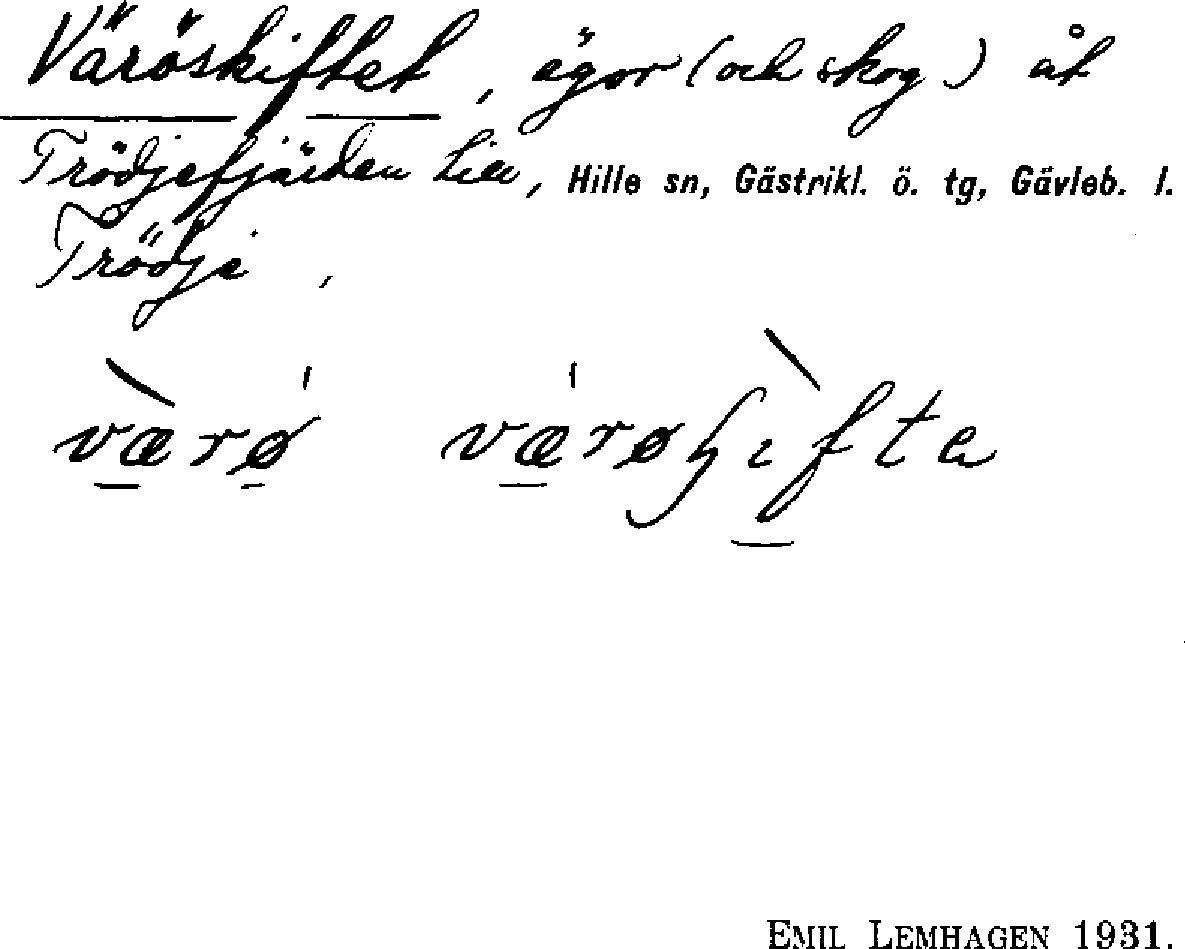 Väröskiftet, ägor (och skog) åt
Trödjefjärden till, Hille sn, Gästrikl. ö. tg, Gävleb. l.
Trödje,
værø værøʃifta
EMIL LEMHAGEN 1931.